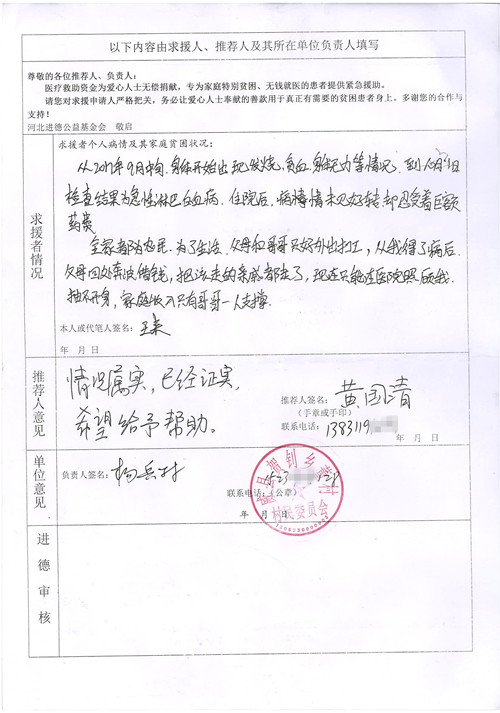 以下内容由求援人、推荐人及其所在单位负责人填写
尊敬的各位推荐人、负责人：
医疗救助资金为爱心人士无偿捐献，专为家庭特别贫困、无钱就医的患者提供紧急援助。
请您对求援申请人严格把关，务必让爱心人士奉献的善款用于真正有需要的贫困患者身上。多谢您的合作与
支持！
河北进德公益基金会 敬启
求援者情况
求援者个人病情及其家庭贫困状况：
从2011年9月中旬，身体开始出现发烧，贫血，身体无力等情况，到人民医
检查结果为急性淋巴白血病。住院后，病情未见好转，却忍受着巨额
药费
全家都为农民，为了生活，父母和哥哥只好外出打工，从我得了病后
父母四处奔波借钱，把该走的亲戚都走了，现在只能在医院照顾我，
抽不开身，家庭收入只有哥哥一人支撑。
本人或代笔人签名：
年 月 日
推荐人意见
情况属实，已经证实，
希望给予帮助。
推荐人签名：黄国清
（手章或手印）
联系电话：1383119
年 月 日
单位意见
负责人签名：杨岳村
联系电话：（公章）
年 月 日
村民委员会
进德审核